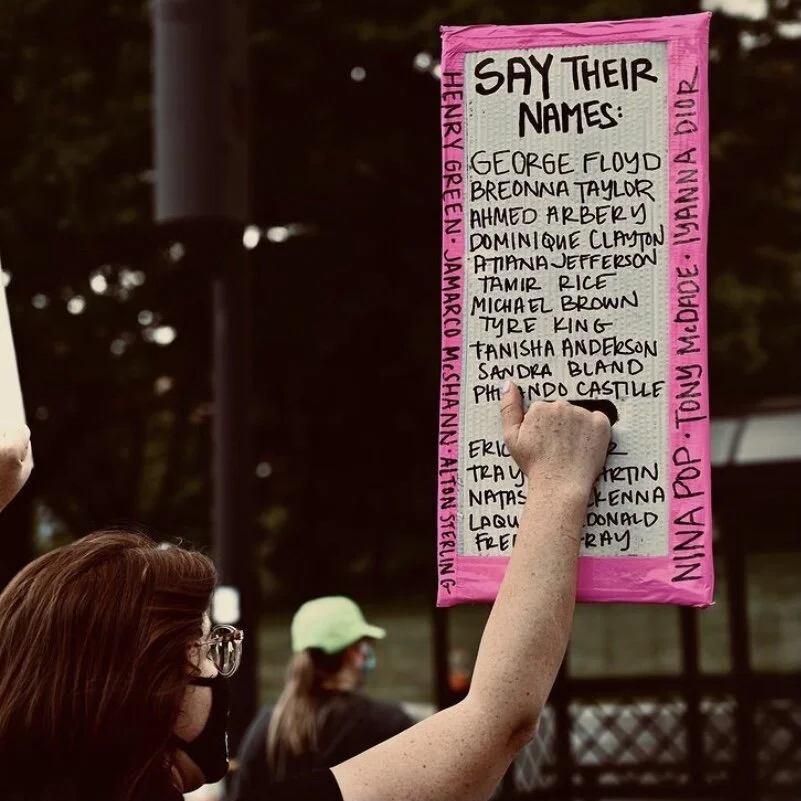 SAY THEIR
NAMES:
GEORGE FLOYD
BREONNA TAYLOR
AHMED ARBERY
DOMINIQUE CLAYTON
ATIANA JEFFERSON
TAMIR RICE
MICHAEL BROWN
TYRE KING
TANISHA ANDERSON
SANDRA BLAND
CASTILLE
ERIC
HENRY GREEN · JAMARCO McSHANN · ALTON STERLING
NINA POP · TONY McDADE · IYANNA DIOR